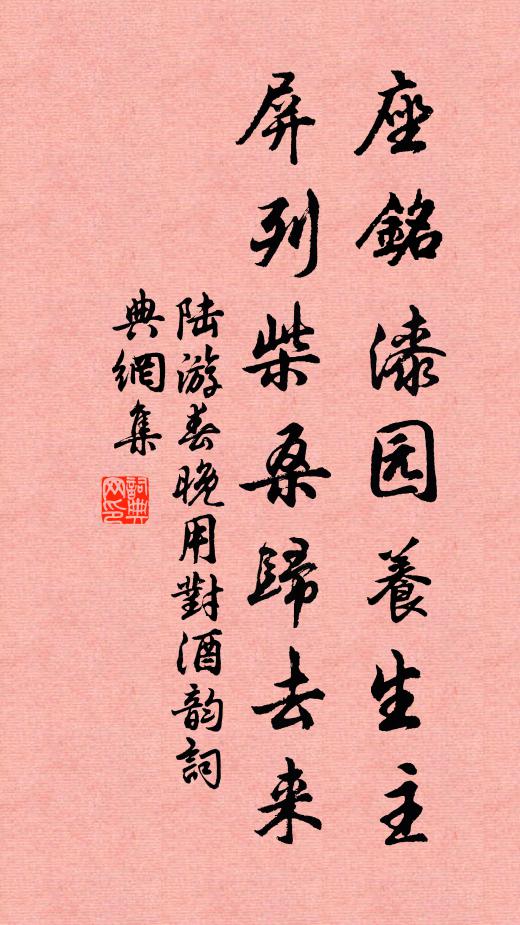 座銘漆园養生主
屏列柴桑歸去来
陆游春晚用對酒韵詞
典網集
詞典网印